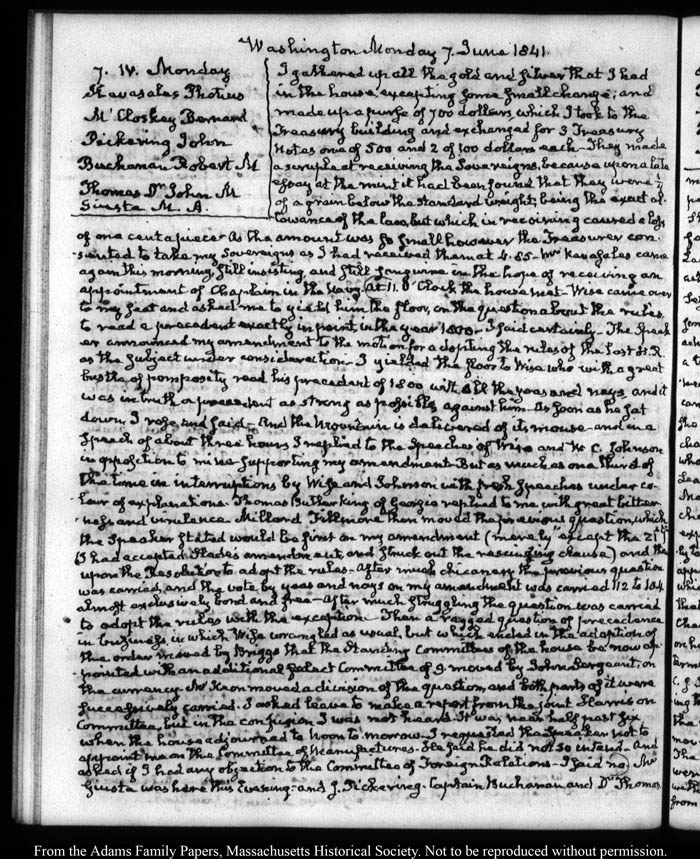 Washington Monday 7. June 1841.
7. IV. Monday
Kavasales Photius
McCloskey Bernard
Pickering John
Buchanan Robert M
Thomas Dr John M
Giusta M. A.
I gathered up all the gold and silver that I had
in the house, excepting some small change; and
made up a purse of 700 dollars, which I took to the
Treasury building and exchanged for 3 Treasury
Notes one of 500 and 2 of 100 dollars each— They made
a scruple at receiving the Sovereigns, because upon a late
essay at the mint it had been found that they were
of a grain below the standard weight; being the exact al-
lowance of the law, but which in receiving caused a loss
of one cent a piece— As the amount was so small however the Treasurer con-
sented to take my Sovereigns as I had received them at 4.85. Mr Kavasales came
again this morning, still insisting, and still sanguine in the hope of receiving an
appointment of Chaplain in the Navy. At 11. O'Clock the house met— Wise came over
to my seat and asked me to yield him the floor, on the question about the rules,
to read a precedent exactly in point, in the year 1800— I said certainly— The Speak-
er announced my amendment to the motion for adopting the rules of the last H.R.
as the subject under consideration— I yielded the floor to Wise who with a great
bustle of pomposity read his precedent of 1800 with all the yeas and nays, and it
was in truth a precedent as strong as possible against him— As soon as he sat
down, I rose and said— And the Mountain is delivered of its mouse— and in a
Speech of about three hours I replied to the Speeches of Wise and W. C. Johnson
in opposition to mine supporting my amendment— But as much as one third of
the time in interruptions by Wise and Johnson with fresh Speeches under co-
lour of explanations. Thomas Butler King of Georgia replied to me with great bitter-
ness and virulence. Millard Fillmore then moved the previous question, which
the Speaker stated would be first on my amendment (merely "except the 21st"
(I had accepted Slades amendment, and struck out the rescinding clause) and then
upon the Resolution to adopt the rules— After much chicanery the previous question
was carried, and the vote by yeas and nays on my amendment was carried 112 to 104
almost exclusively bond and free— After much struggling the question was carried
to adopt the rules with the exception— Then a ragged question of precedence
in business, in which Wise wrangled as usual, but which ended in the adoption of
the order moved by Briggs that the Standing Committees of the house be now ap-
pointed with an additional select Committee of 9. moved by John Sergeant, on
the currency— McKeon moved a division of the question, and both parts of it were
successively carried. I asked leave to make a report from the joint Harrison
Committee, but in the confusion I was not heard. It was near half past six
when the house adjourned to Noon to-morrow— I requested the Speaker not to
appoint me on the Committee of Manufactures— He said he did not so intend— And
asked if I had any objection to the Committee of Foreign Relations— I said no, Mr
Giusta was here this Evening— and J. Pickering, Captain Buchanan and Dr Thomas.
From the Adams Family Papers, Massachusetts Historical Society. Not to be reproduced without permission.